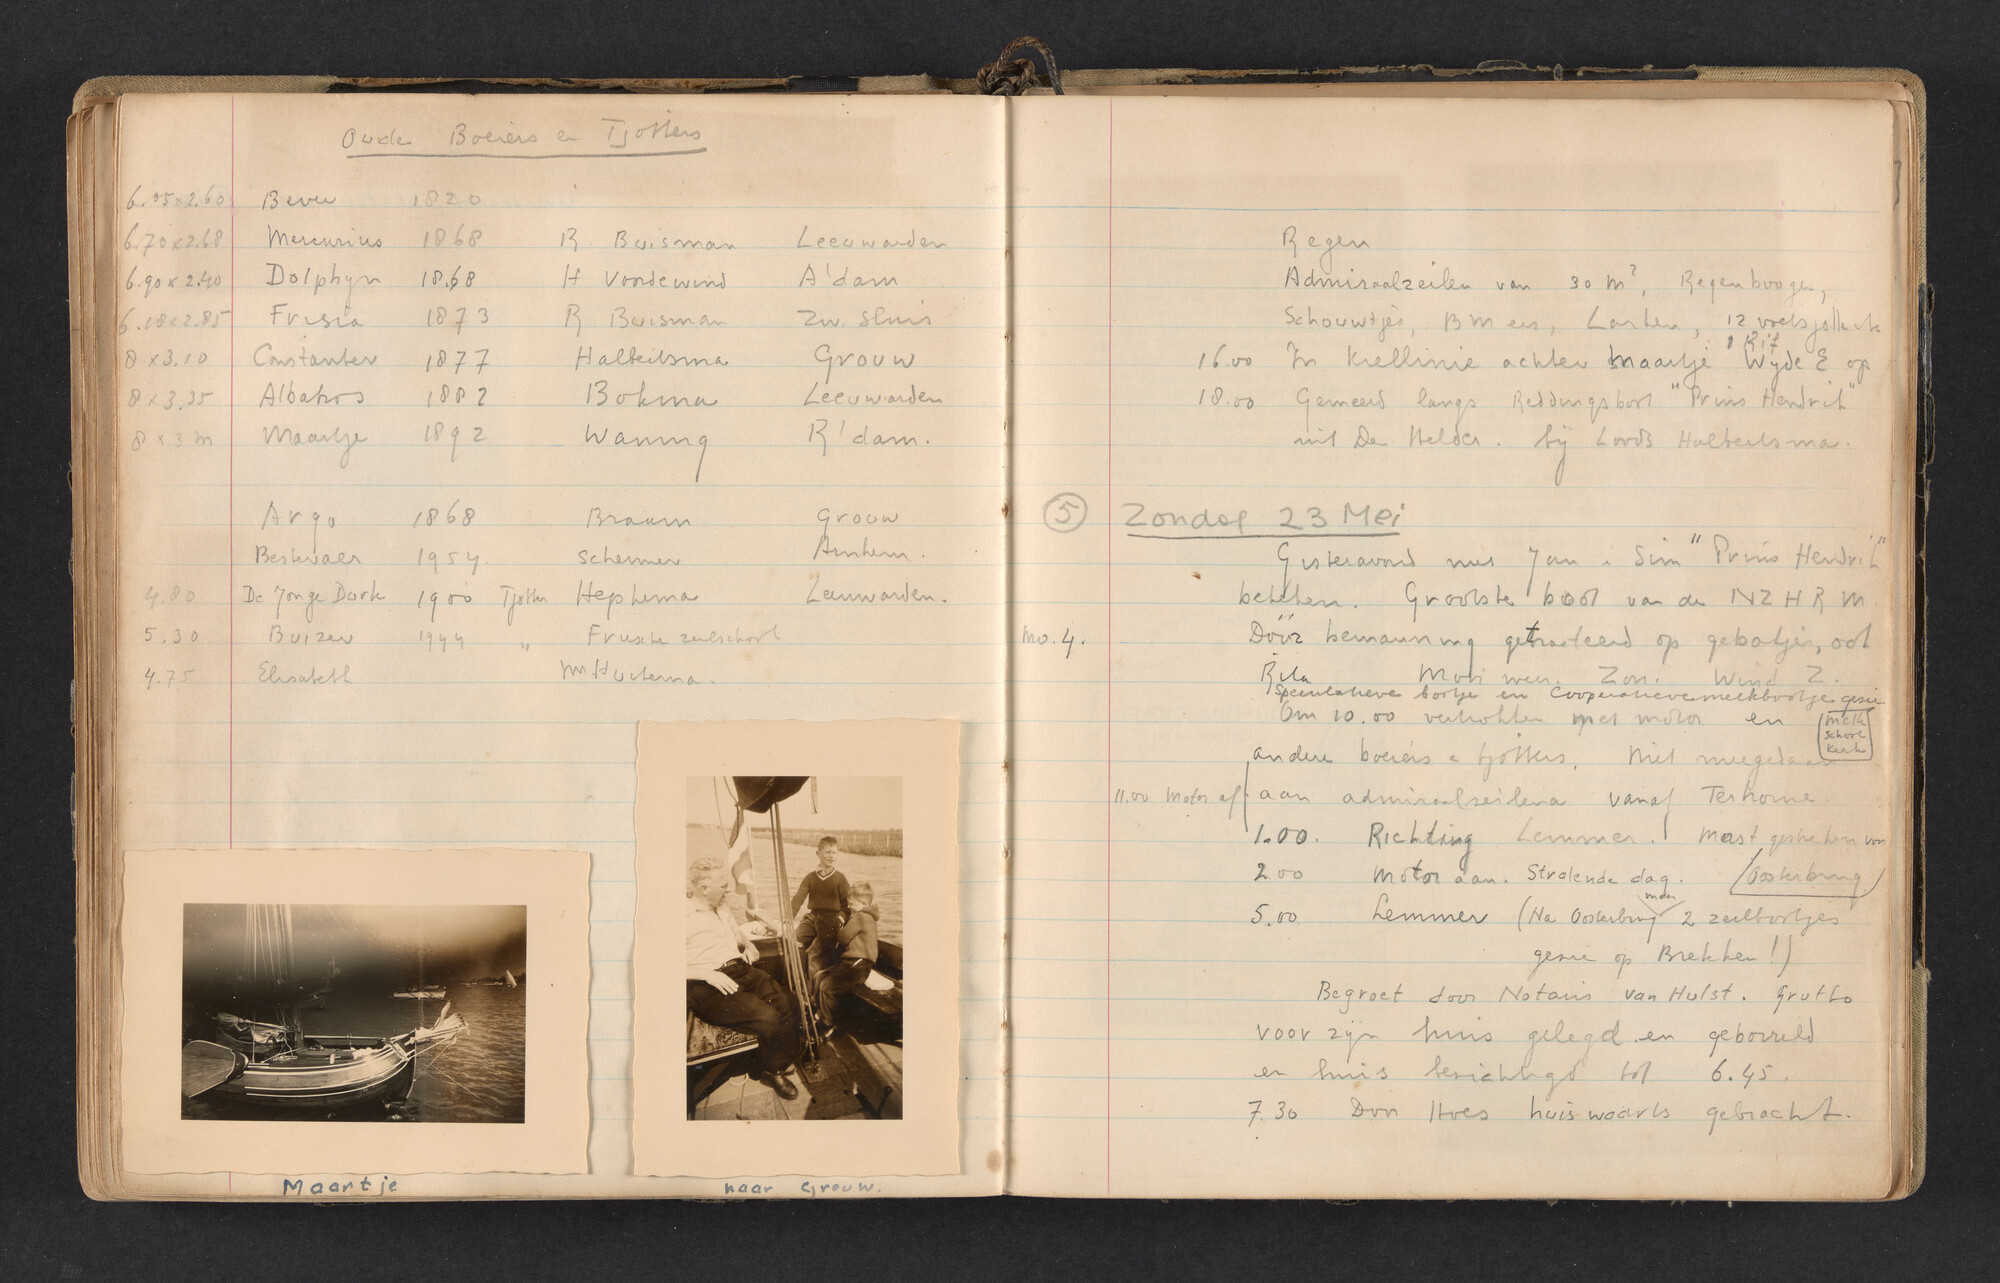 Oude Boeiers en Tjotters
6.05x2.60 Bever 1820
6.70x2.68 Mercurius 1868 R. Buisman Leeuwarden
6.90x2.40 Dolphyn 1868 H Voordewind A'dam
6.18x2.85 Frisia 1873 R Buisman Zw. Sluis
8x3.10 Constanter 1877 Halbertsma Grouw
8x3.35 Albatros 1882 Bokma Leeuwarden
8x3m Maartje 1892 Waning R'dam.
Argo 1868 Braam Grouw
Bestevaer 1954 Schemer Arnhem.
4.80 De Jonge Durk 1900 Tjotter Hepkema Leeuwarden.
5.30 Buizer 1944 " Friesche zeilschool
4.75 Elisabeth Mr Huitema.
Maartje
naar Grouw.
Regen
Admiraalzeilen van 30 m², Regenboogen,
Schouwtjes, BMers, Larken, 12 voetsjollen
1 Rif
16.00 In Kiellinie achter Maartje Wyde E op
18.00 Gemeerd langs Reddingsboot "Prins Hendrik"
uit Den Helder. bij Loods Halbertsma.
5 Zondag 23 Mei
Gisteravond met Jan & Sim "Prins Hendrik"
bekeken. Grootste boot van de NZHRM.
Mo. 4. Door bemanning getracteerd op gebakjes, ook
Rita Mooi weer. Zon. Wind Z.
Speculatieve bootje en Cooperatieve melkbootje gezie
Om 10.00 vertrokken met motor en
melk
school
kerk
andere boeiers & tjotters. Niet meegedaan
11.00 Motor af aan admiraalzeilen vanaf Terhorne
1.00. Richting Lemmer. Mast gestreken voor
2.00 Motor aan. Stralende dag. Oosterbrug
5.00 Lemmer (Na Oosterbrug maar 2 zeilbootjes
gezie op Brekken!)
Begroet door Notaris van Hulst. Grutto
voor zijn huis gelegd en geborreld
en huis bezichtigd tot 6.45.
7.30 Door Hoes huiswaarts gebracht.